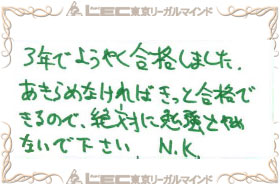 LEC東京リーガルマインド
3年でようやく合格しました.
あきらめなければきっと合格で
きるので、絶対に勉強とやめ
ないで下さい N.K.
LEC東京リーガルマインド